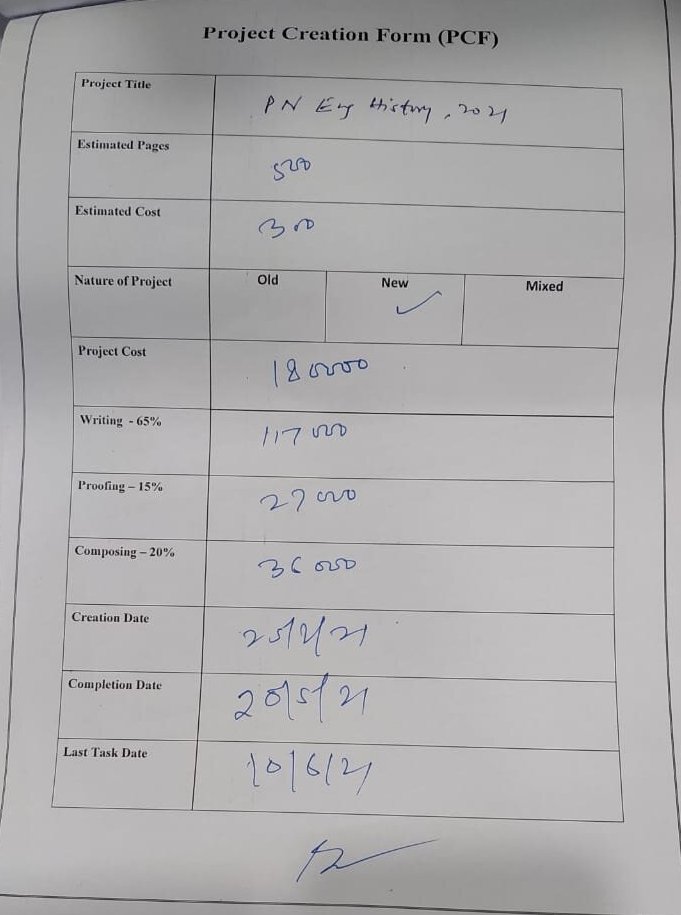 Project Creation Form (PCF)
Project Title PN Eng History, 2021
Estimated Pages 520
Estimated Cost 300
Nature of Project Old New ✓ Mixed
Project Cost 180000
Writing - 65% 117000
Proofing – 15% 27000
Composing – 20% 36000
Creation Date 25/2/21
Completion Date 20/5/21
Last Task Date 10/6/21